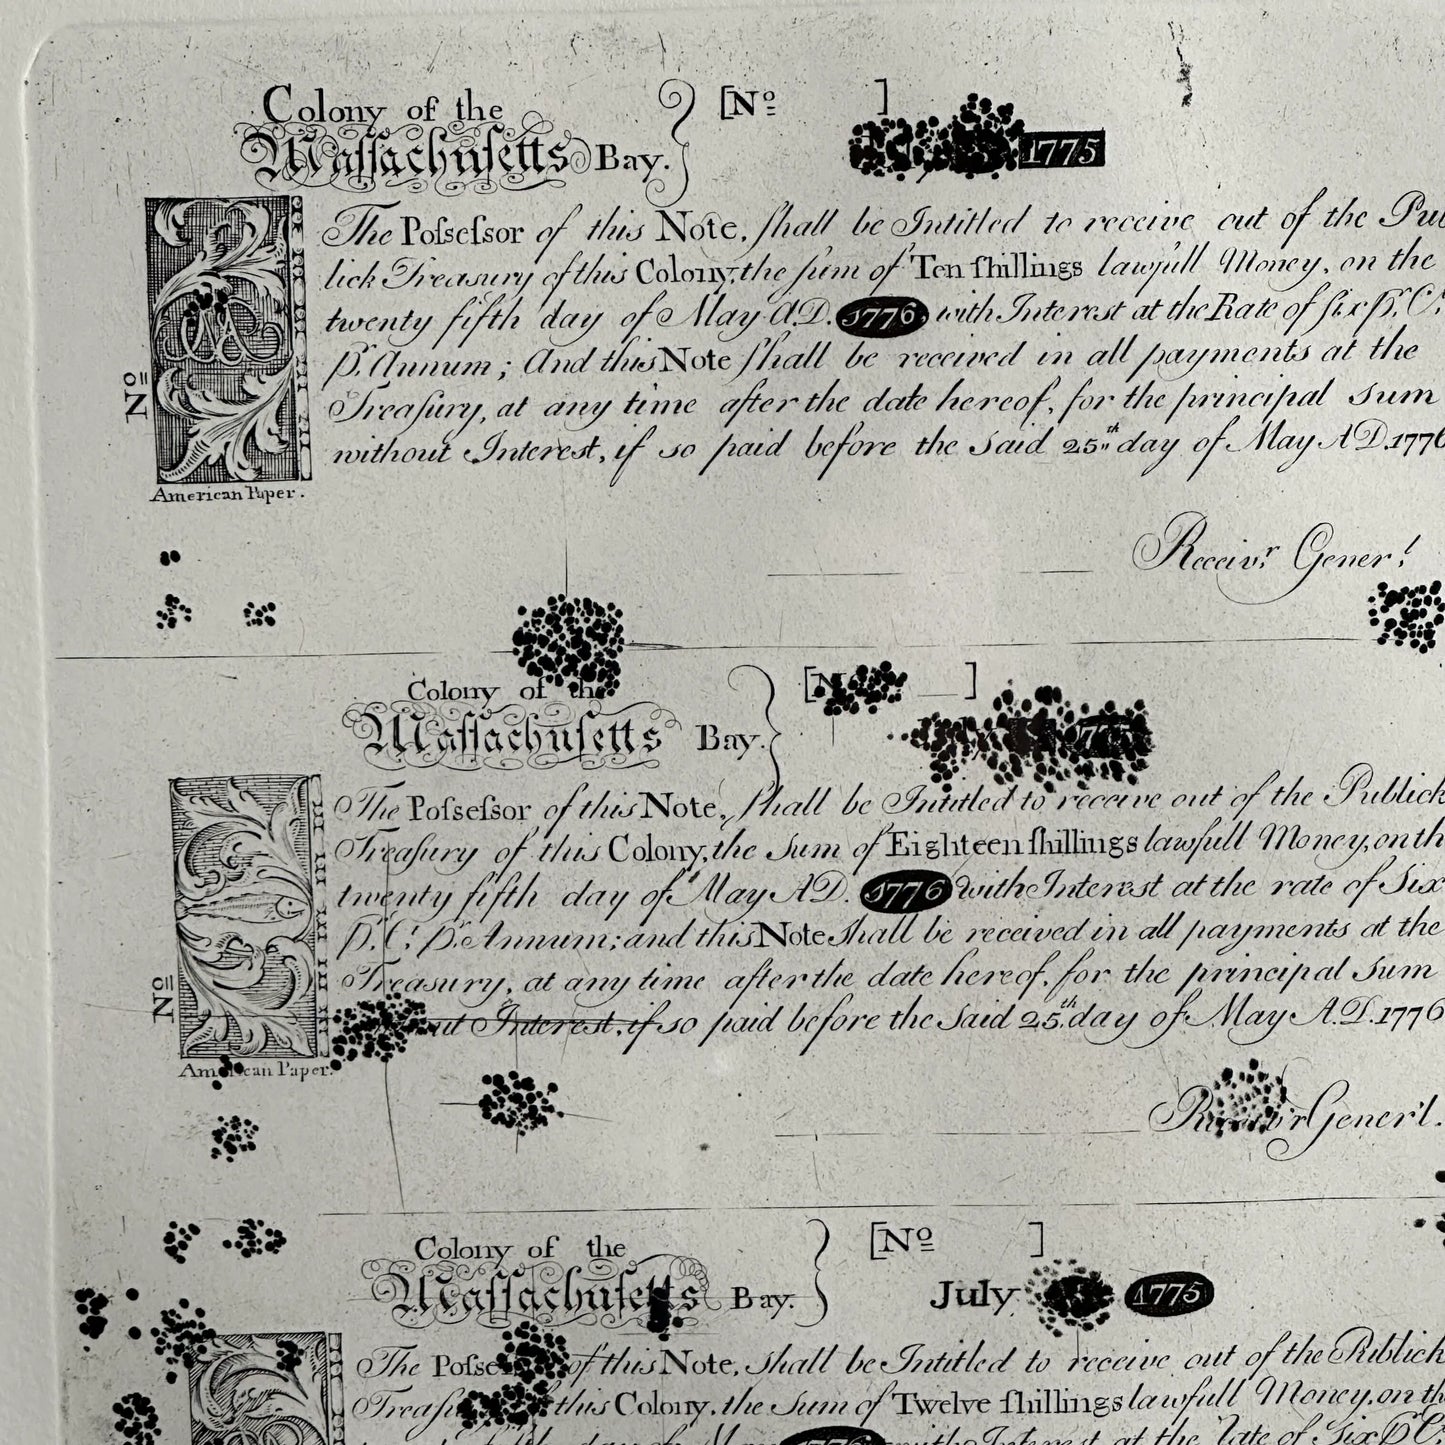 Colony of the
Maſſachuſetts Bay.
[No ]
1775
The Poſseſsor of this Note, ſhall be Intitled to receive out of the Pub
lick Treasury of this Colony, the ſum of Ten ſhillings lawfull Money, on the
twenty fifth day of May A.D. 1776 with Interest at the Rate of ſix Pr. Ct
Pr. Annum; And this Note ſhall be received in all payments at the
Treaſury, at any time after the date hereof, for the principal Sum
without Interest, if so paid before the said 25th day of May A D. 1776
No
American Paper.
Receivr. Generl.
Colony of the
Maſſachuſetts Bay.
[N ]
The Poſseſsor of this Note, ſhall be Intitled to receive out of the Publick
Treaſury of this Colony, the Sum of Eighteen ſhillings lawfull Money, on th
twenty fifth day of May A D. 1776 with Interest at the rate of Six
Pr. Ct. Pr. Annum; and this Note Shall be received in all payments at the
Treasury, at any time after the date hereof, for the principal Sum
out Interest, if so paid before the Said 25th. day of May A.D. 1776
No
American Paper.
Gener'l.
Colony of the
Maſſachuſetts Bay.
[No ]
July 1775
The Poſse of this Note, Shall be Intitled to receive out of the Publick
Treaſu this Colony, the Sum of Twelve ſhillings lawfull Money, on th
day of 1776 with Interest at the rate of Six Pr Ct.